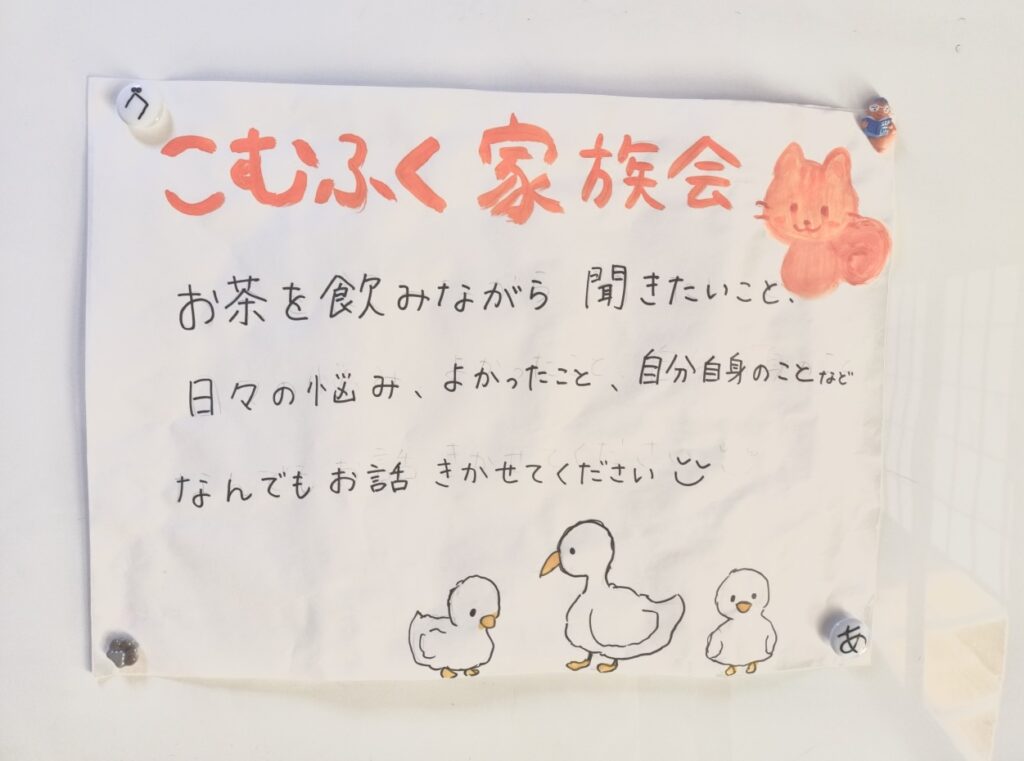 こむふく 家族会
お茶を飲みながら 聞きたいこと、
日々の悩み、よかったこと、自分自身のことなど
なんでもお話 きかせてください
あ